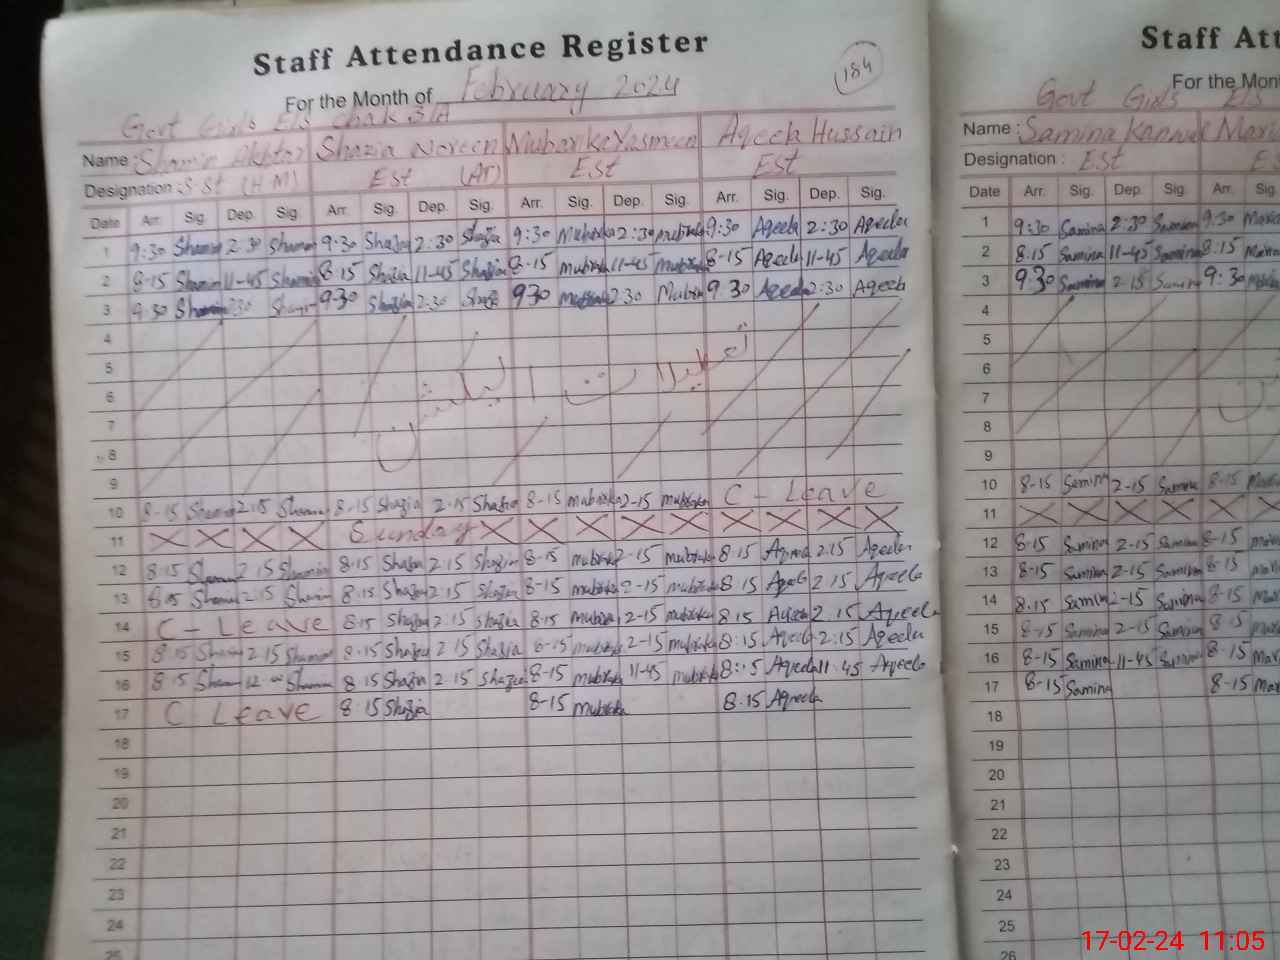 Staff Attendance Register
184
For the Month of February 2024
Govt Girls E/S Chak 31A
Name : Shamim Akhtar Shazia Noreen Mubarika Yasmeen Aqeela Hussain
Designation : SSt (HM) Est (AT) E.St Est
Date Arr. Sig. Dep. Sig. Arr. Sig. Dep. Sig. Arr. Sig. Dep. Sig. Arr. Sig. Dep. Sig.
1 9:30 Shamim 2:30 Shamim 9:30 Shazia 2:30 Shazia 9:30 Mubarika 2:30 mubarika 9:30 Aqeela 2:30 Aqeela
2 8-15 Shamim 11-45 Shamim 8.15 Shazia 11-45 Shazia 8-15 mubarika 11-45 mubarika 8-15 Aqeela 11-45 Aqeela
3 9:30 Shamim 2:30 Shamim 9:30 Shazia 2:30 Shazia 930 mubarika 2.30 Mubarika 9.30 Aqeela 2:30 Aqeela
4
5
تعطیلات الیکشن
6
7
8
9
10 8-15 Shamim 2-15 Shamim 8-15 Shazia 2-15 Shazia 8-15 mubarika 2-15 mubarika C-Leave
11 Sunday
12 8.15 Shamim 2.15 Shamim 8.15 Shazia 2.15 Shazia 8-15 mubarika 2-15 mubarika 8.15 Aqeela 2.15 Aqeela
13 8.15 Shamim 2.15 Shamim 8.15 Shazia 2.15 Shazia 8-15 mubarika 2-15 mubarika 8.15 Aqeela 2.15 Aqeela
14 C-Leave 8.15 Shazia 2.15 Shazia 8.15 mubarika 2-15 mubarika 8.15 Aqeela 2.15 Aqeela
15 8.15 Shamim 2.15 Shamim 8.15 Shazia 2.15 Shazia 8-15 mubarika 2-15 mubarika 8:15 Aqeela 2:15 Aqeela
16 8.15 Shamim 12 Shamim 8.15 Shazia 2.15 Shazia 8-15 mubarika 11-45 mubarika 8:15 Aqeela 11.45 Aqeela
17 C Leave 8.15 Shazia 8-15 mubarika 8.15 Aqeela
18
19
20
21
22
23
24
25
Staff Att
For the Mon
Govt Girls E/S
Name : Samina Kanwal
Designation : E.St
Date Arr. Sig. Dep. Sig. Arr. Sig.
1 9:30 Samina 2:30 Samina 9.30
2 8.15 Samina 11-45 Samina 8.15
3 9.30 Samina 2.15 Samina 9:30
4
5
6
7
8
9
10 8-15 Samina 2-15 Samina 8-15
11
12 8.15 Samina 2-15 Samina 8-15
13 8.15 Samina 2-15 Samina 8-15
14 8.15 Samina 2-15 Samina 8-15
15 8-15 Samina 2-15 Samina 8.15
16 8-15 Samina 11-45 Samina 8.15
17 8-15 Samina 8-15
18
19
20
21
22
23
24
25
26
17-02-24 11:05